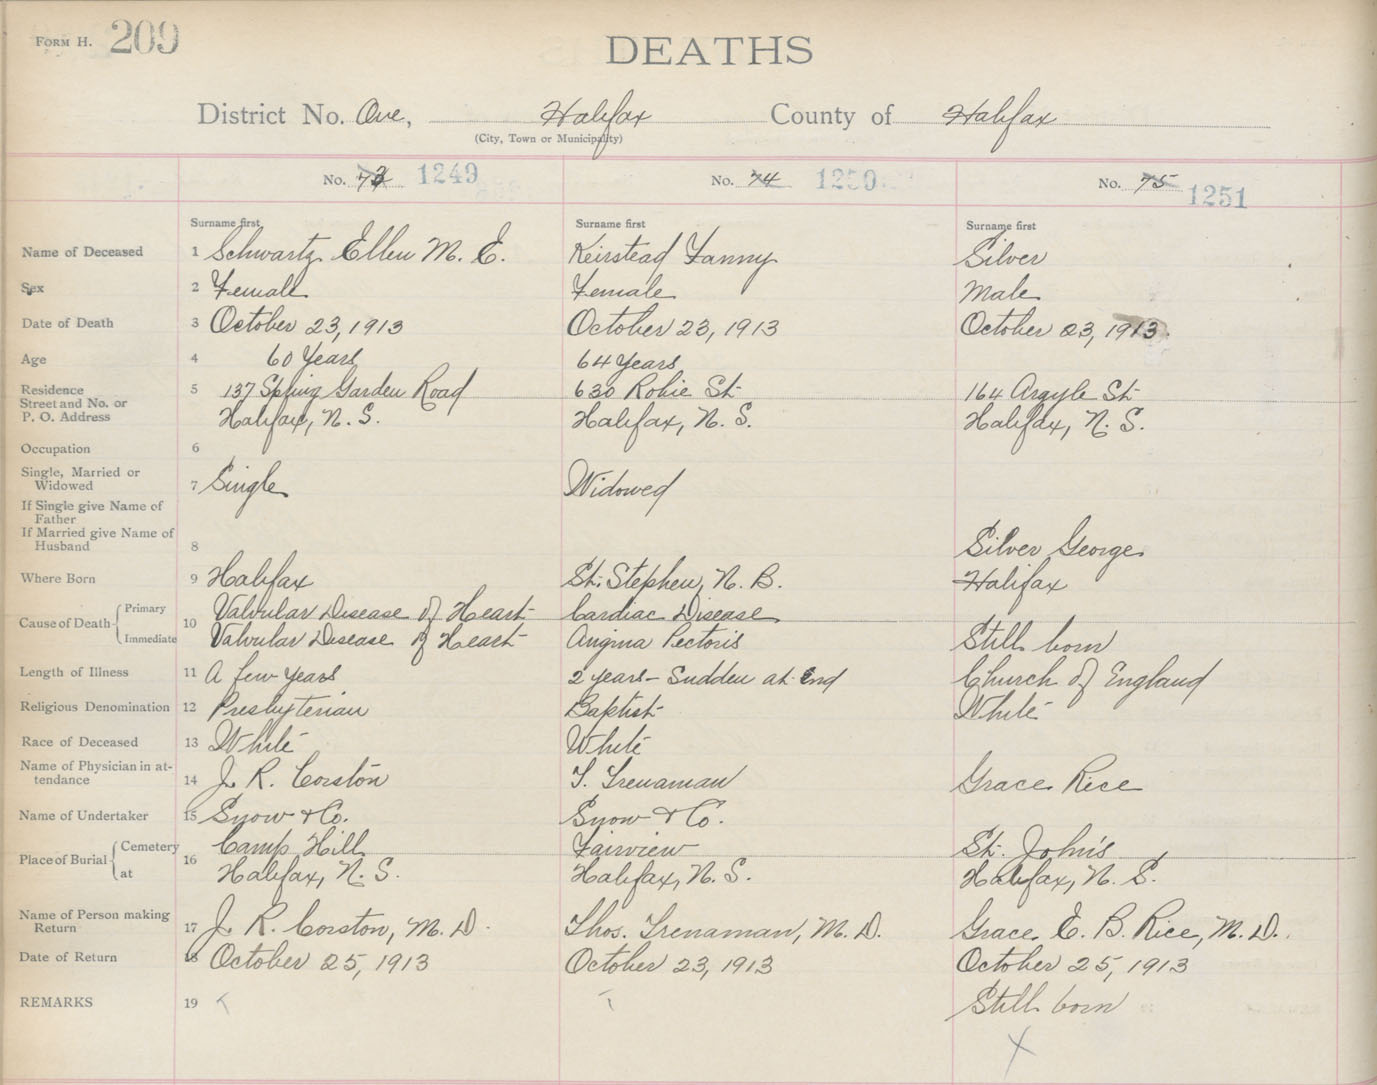 FORM H. 209
DEATHS
District No. One, Halifax County of Halifax
(City, Town or Municipality)
No. 73 1249 No. 74 1250 No. 75 1251
Surname first Surname first Surname first
Name of Deceased 1 Schwartz Ellen M. E. Keirstead Fanny Silver
Sex 2 Female Female Male
Date of Death 3 October 23, 1913 October 23, 1913 October 23, 1913.
Age 4 60 Years 64 Years
Residence 5 137 Spring Garden Road 630 Robie St. 164 Argyle St.
Street and No. or
P. O. Address Halifax, N. S. Halifax, N. S. Halifax, N. S.
Occupation 6
Single, Married or
Widowed 7 Single Widowed
If Single give Name of
Father
If Married give Name of
Husband 8 Silver George
Where Born 9 Halifax St. Stephen, N. B. Halifax
Primary Valvular Disease of Heart Cardiac Disease
Cause of Death 10
Immediate Valvular Disease of Heart Angina Pectoris Still born
Length of Illness 11 A few years 2 years - Sudden at End Church of England
Religious Denomination 12 Presbyterian Baptist White
Race of Deceased 13 White White
Name of Physician in at-
tendance 14 J. R. Corston T. Trenaman Grace Rice
Name of Undertaker 15 Snow & Co. Snow & Co.
Cemetery Camp Hill Fairview St. John's
Place of Burial 16
at Halifax, N. S. Halifax, N. S. Halifax, N. S.
Name of Person making
Return 17 J. R. Corston, M. D. Thos. Trenaman, M. D. Grace E. B. Rice, M. D.
Date of Return 18 October 25, 1913 October 23, 1913 October 25, 1913
REMARKS 19 Still born
X